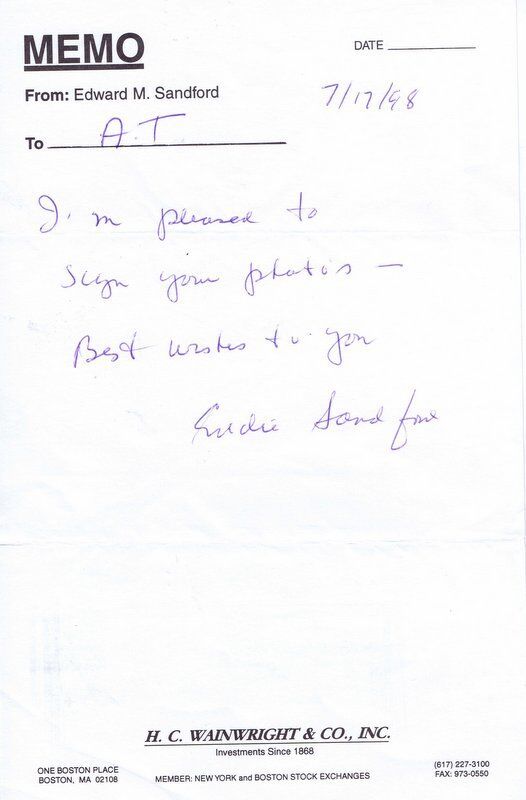 MEMO
DATE
From: Edward M. Sandford
7/17/98
To A.T
I'm pleased to
sign your photos —
Best wishes to you
Eddie Sandford
H. C. WAINWRIGHT & CO., INC.
Investments Since 1868
ONE BOSTON PLACE
BOSTON, MA 02108
MEMBER: NEW YORK and BOSTON STOCK EXCHANGES
(617) 227-3100
FAX: 973-0550